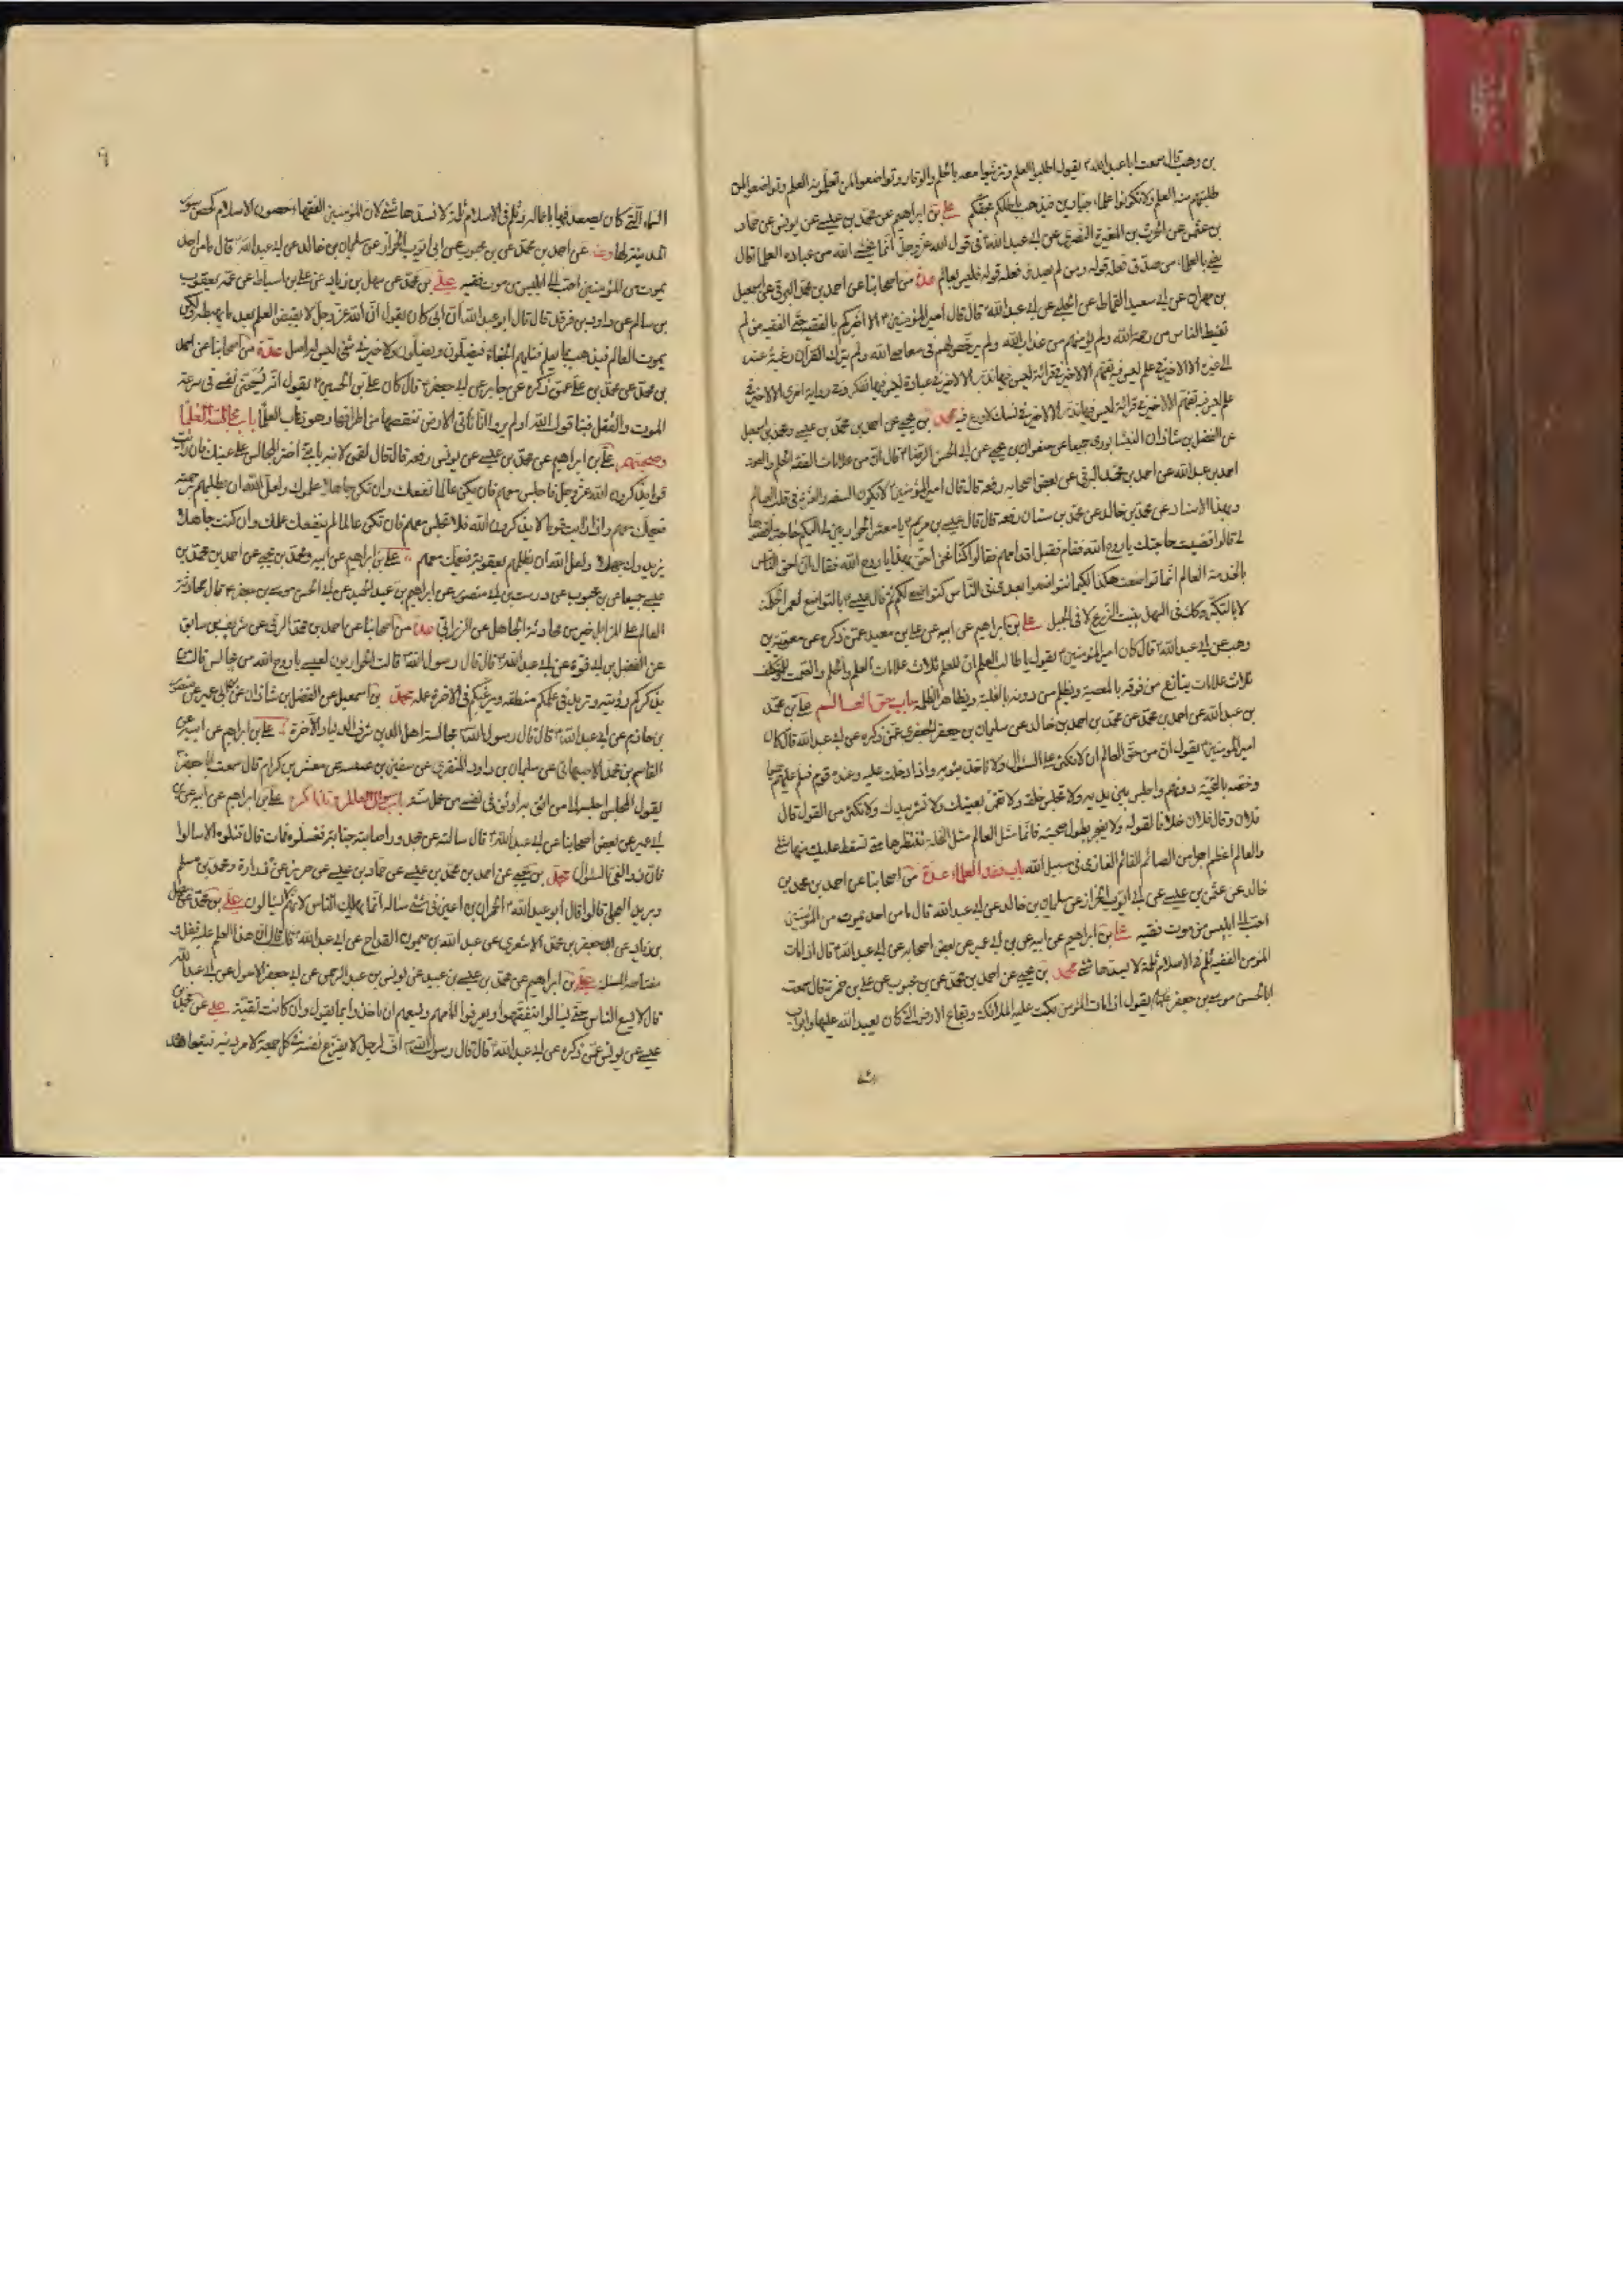 بن وهب قال سمعت ابا عبد الله ع يقول اطلبوا العلم وتزينوا معه بالحلم والوقار وتواضعوا لمن تعلمونه العلم وتواضعوا لمن
طلبتم منه العلم ولا تكونوا علماء جبارين فيذهب باطلكم بحقكم علي بن ابراهيم عن محمد بن عيسى عن يونس عن حماد
بن عثمن عن الحرث بن المغيرة النصري عن ابي عبد الله ع في قول الله عز وجل انما يخشى الله من عباده العلماء قال
يعني بالعلماء من صدق فعله قوله ومن لم يصدق فعله قوله فليس بعالم عدة من اصحابنا عن احمد بن محمد البرقي عن اسمعيل
بن مهران عن ابي سعيد القماط عن الحلبي عن ابي عبد الله ع قال قال امير المؤمنين ع الا اخبركم بالفقيه حق الفقيه من لم
يقنط الناس من رحمة الله ولم يؤمنهم من عذاب الله ولم يرخص لهم في معاصي الله ولم يترك القرآن رغبة عنه
الى غيره الا لا خير في علم ليس فيه تفهم الا لا خير في قرائة ليس فيها تدبر الا لا خير في عبادة ليس فيها تفكر وفي رواية اخرى الا لا خير في
علم ليس فيه تفهم الا لا خير في قرائة ليس فيها تدبر الا لا خير في نسك لا ورع فيه محمد بن يحيى عن احمد بن محمد بن عيسى ومحمد بن اسمعيل
عن الفضل بن شاذان النيشابوري جميعا عن صفوان بن يحيى عن ابي الحسن الرضا ع قال ان من علامات الفقه الحلم والصمت
احمد بن عبد الله عن احمد بن محمد البرقي عن بعض اصحابه رفعه قال قال امير المؤمنين ع لا يكون السفه والغرة في قلب العالم
وبهذا الاسناد عن محمد بن خالد عن محمد بن سنان رفعه قال قال عيسى بن مريم ع يا معشر الحواريين لي اليكم حاجة اقضوها
لي قالوا قضيت حاجتك يا روح الله فقام فقبل اقدامهم فقالوا كنا نحن احق بهذا يا روح الله فقال ان احق الناس
بالخدمة العالم انما تواضعت هكذا لكيما تتواضعوا بعدي في الناس كتواضعي لكم ثم قال عيسى ع بالتواضع تعمر الحكمة
لا بالتكبر وكذلك في السهل ينبت الزرع لا في الجبل علي بن ابراهيم عن ابيه عن علي بن معبد عمن ذكره عن معوية بن
وهب عن ابي عبد الله ع قال كان امير المؤمنين ع يقول يا طالب العلم ان للعلم ثلاث علامات العلم والحلم والصمت وللمتكلف
ثلاث علامات ينازع من فوقه بالمعصية ويظلم من دونه بالغلبة ويظاهر الظلمة باب حق العالم علي بن محمد
بن عبد الله عن احمد بن محمد عن محمد بن خالد عن سليمان بن جعفر الجعفري عمن ذكره عن ابي عبد الله قال كان
امير المؤمنين ع يقول ان من حق العالم ان لا تكثر عليه السؤال ولا تاخذ بثوبه واذا دخلت عليه وعنده قوم فسلم عليهم جميعا
وخصه بالتحية دونهم واجلس بين يديه ولا تجلس خلفه ولا تغمز بعينك ولا تشر بيدك ولا تكثر من القول قال
فلان وقال فلان خلافا لقوله ولا تضجر بطول صحبته فانما مثل العالم مثل النخلة تنتظرها حتى تسقط عليك منها شئ
والعالم اعظم اجرا من الصائم القائم الغازي في سبيل الله باب فقد العلماء عدة من اصحابنا عن احمد بن محمد بن
خالد عن عثمن بن عيسى عن ابي ايوب الخزاز عن سليمان بن خالد عن ابي عبد الله قال ما من احد يموت من المؤمنين
احب الى ابليس من موت فقيه علي بن ابراهيم عن ابيه عن بن ابي عمير عن بعض اصحابه عن ابي عبد الله ع قال اذا مات
المؤمن الفقيه ثلم في الاسلام ثلمة لا يسدها شئ محمد بن يحيى عن احمد بن محمد عن بن محبوب عن علي بن حمزة قال سمعت
ابا الحسن موسى بن جعفر يقول اذا مات المؤمن بكت عليه الملائكة وبقاع الارض التي كان يعبد الله عليها وابواب
السماء
٩
السماء التي كان يصعد فيها باعماله وثلم في الاسلام ثلمة لا يسدها شئ لان المؤمنين الفقهاء حصون الاسلام كحصن سور
المدينة لها وعنه عن احمد بن محمد عن بن محبوب عن ابي ايوب الخزاز عن سليمان بن خالد عن ابي عبد الله قال ما من احد
يموت من المؤمنين احب الى ابليس من موت فقيه علي بن محمد عن سهل بن زياد عن علي بن اسباط عن عمه يعقوب
بن سالم عن داود بن فرقد قال قال ابو عبد الله ان ابي كان يقول ان الله عز وجل لا يقبض العلم بعد ما يهبطه ولكن
يموت العالم فيذهب بما يعلم فتليهم الجفاة فيضلون ويضلون ولا خير في شئ ليس له اصل عدة من اصحابنا عن احمد
بن محمد عن محمد بن علي عمن ذكره عن جابر عن ابي جعفر ع قال كان علي بن الحسين ع يقول انه يسخي نفسي في سرعة
الموت والقتل فينا قول الله اولم يروا انا نأتي الارض ننقصها من اطرافها وهو ذهاب العلماء باب مجالسة العلماء
وصحبتهم علي بن ابراهيم عن محمد بن عيسى عن يونس رفعه قال قال لقمن لابنه يا بني اختر المجالس على عينك فان رايت
قوما يذكرون الله عز وجل فاجلس معهم فان تكن عالما نفعك وان تكن جاهلا علموك ولعل الله ان يظلهم برحمته
فيعمك معهم واذا رايت قوما لا يذكرون الله فلا تجلس معهم فان تكن عالما لم ينفعك علمك وان كنت جاهلا
يزيدوك جهلا ولعل الله ان يظلهم بعقوبة فيعمك معهم علي بن ابراهيم عن ابيه ومحمد بن يحيى عن احمد بن محمد بن
عيسى جميعا عن بن محبوب عن درست بن ابي منصور عن ابراهيم بن عبد الحميد عن ابي الحسن موسى بن جعفر ع قال محادثة
العالم على المزابل خير من محادثة الجاهل على الزرابي عدة من اصحابنا عن احمد بن محمد البرقي عن شريف بن سابق
عن الفضل بن ابي قرة عن ابي عبد الله ع قال قال رسول الله قالت الحواريون لعيسى يا روح الله من نجالس قال من
يذكركم رؤيته ويزيد في علمكم منطقه ويرغبكم في الاخرة عمله محمد بن اسمعيل عن الفضل بن شاذان عن بن ابي عمير عن منصور
بن حازم عن ابي عبد الله ع قال قال رسول الله مجالسة اهل الدين شرف الدنيا والآخرة علي بن ابراهيم عن ابيه عن
القاسم بن محمد الاصبهاني عن سليمان بن داود المنقري عن سفين بن عيينه عن مسعر بن كدام قال سمعت ابا جعفر ع
يقول المجلس اجلسه الى من اثق به اوثق في نفسي من عمل سنة باب سؤال العالم وتذاكره علي بن ابراهيم عن ابيه عن بن
ابي عمير عن بعض اصحابنا عن ابي عبد الله ع قال سالته عن مجدور اصابته جنابة فغسلوه فمات قال قتلوه الا سالوا
فان دواء العي السؤال محمد بن يحيى عن احمد بن محمد بن عيسى عن حماد بن عيسى عن حريز عن زرارة ومحمد بن مسلم
وبريد العجلي قالوا قال ابو عبد الله ع لحمران بن اعين في شئ ساله انما يهلك الناس لانهم لا يسالون علي بن محمد عن سهل
بن زياد عن جعفر بن محمد الاشعري عن عبد الله بن ميمون القداح عن ابي عبد الله ع قال قال ان هذا العلم عليه قفل و
مفتاحه المسئلة علي بن ابراهيم عن محمد بن عيسى بن عبيد عن يونس بن عبد الرحمن عن ابي جعفر الاحول عن ابي عبد الله
قال لا يسع الناس حتى يسالوا ويتفقهوا ويعرفوا امامهم ويسعهم ان ياخذوا بما يقول وان كانت تقية علي عن محمد بن
عيسى عن يونس عمن ذكره عن ابي عبد الله ع قال قال رسول الله اف لرجل لا يفرغ نفسه في كل جمعة لامر دينه فيتعاهده